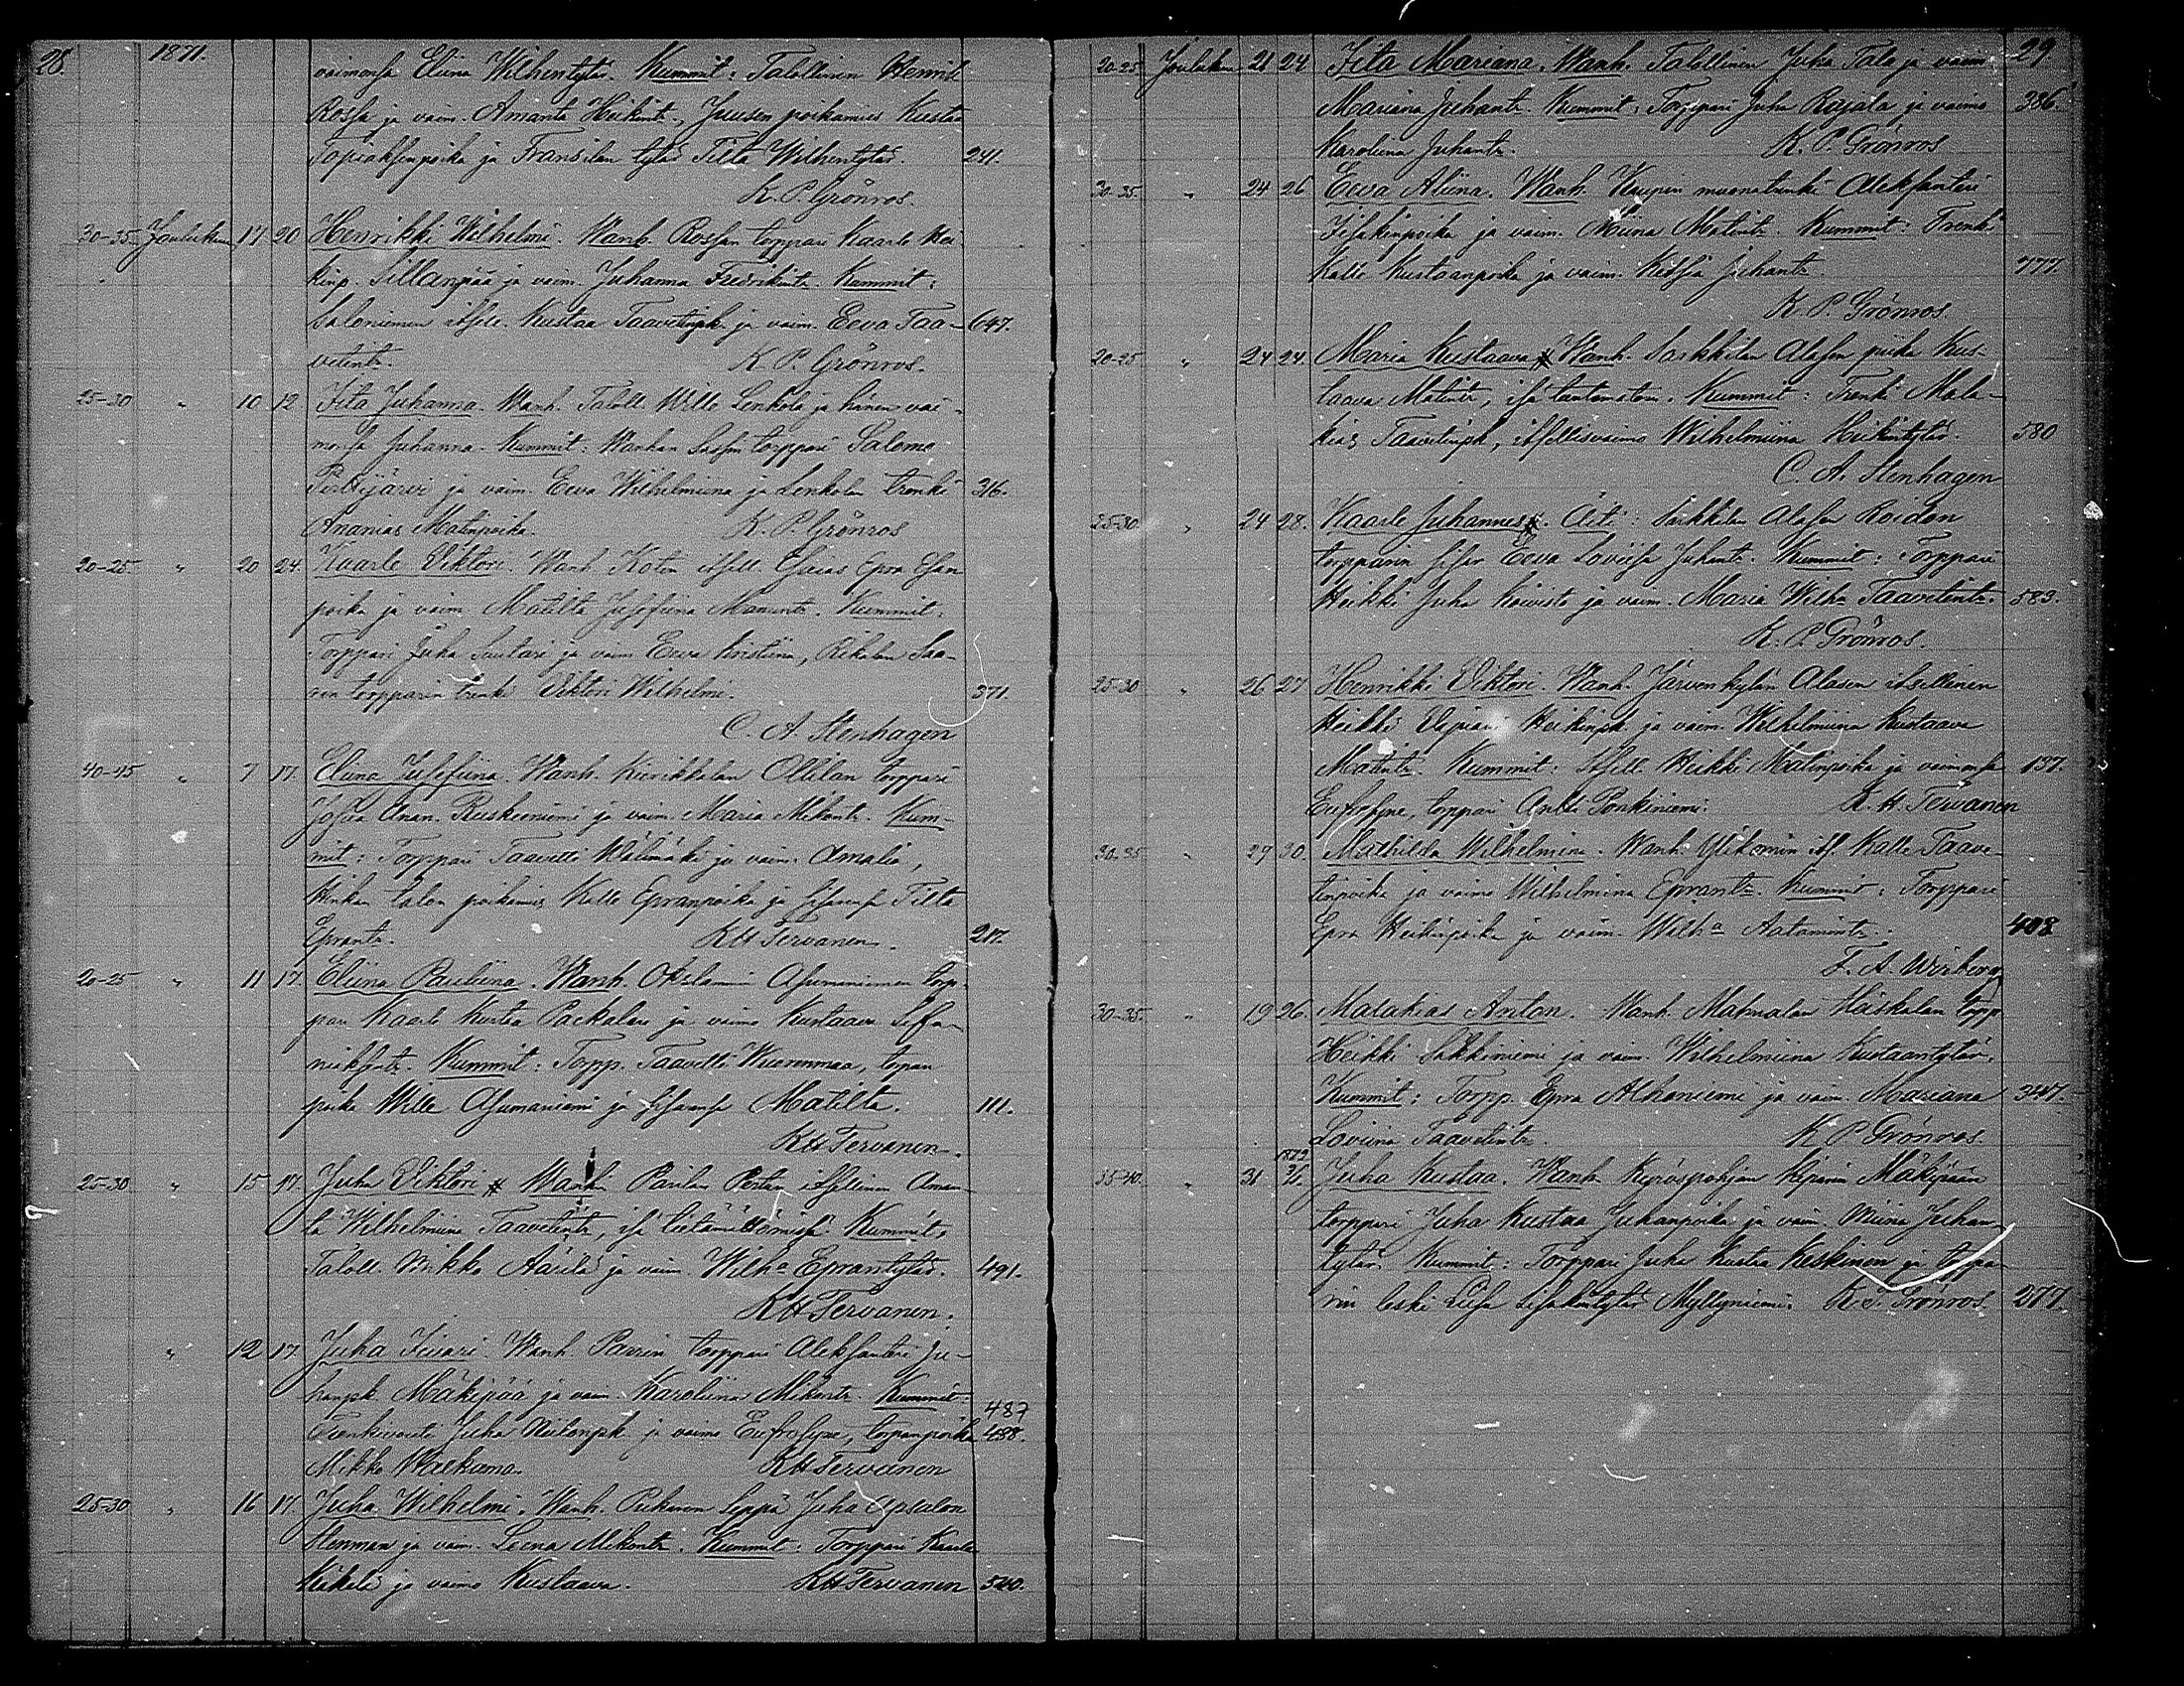 28. 1871.
vaimonsa Eliina Wilhentytär. Kummit: Talollinen Henrik
Rossa ja vaim. Amanta Heikintr, Juusen poikamies Kustaa
Topiaksenpoika ja Fransilan tytär Tilta Wilhentytär. 241.
K. P. Grönros.
30-35 Joulukun 17 20 Henrikki Wilhelmi. Wanh. Rossan torppari Kaarle Hei-
kinp. Sillanpää ja vaim. Juhanna Fredrikintr. Kummit:
Saloniemen itsell. Kustaa Taavetinpk. ja vaim. Eeva Taa- 647.
vetintr. K. P. Grönros.
25-30 " 10 12 Iita Juhanna. Wanh. Taloll. Wille Lenkola ja hänen vai-
monsa Juhanna. Kummit: Wanhan Sassin torppari Salomo
Pirttijärvi ja vaim. Eeva Wilhelmiina ja Lenkolan trenki 316.
Ananias Matinpoika. K. P. Grönros
20-25 " 20 24 Kaarle Viktori. Wanh. Kotin itsell. Esaias Epra Esan
poika ja vaim. Matilta Josefiina Manuntr. Kummit.
Torppari Juha Sautari ja vaim Eeva Kristiina, Rikalan Saa-
ren torpparin trenki Viktori Wilhelmi. 371.
C. A. Stenhagen
40-45 " 7 17. Eliina Josefiina. Wanh. Kierikkalan Ollilan torppari
Josua Anan. Ruskeeniemi ja vaim. Maria Mikontr. Kum-
mit: Torppari Taavetti Wälimäki ja vaim. Amalia,
Hinkan talon poikamies Kalle Epranpoika ja sisarensa Tilta
Eprantr. KH Tervanen. 217.
20-25 " 11 17. Eliina Pauliina. Wanh. Asumaniemen torp-
pari Kaarle Kustaa Packalen ja vaimo Kustaava
Kummit: Torpp. Taavetti Wuorenmaa, torpan
poika Wille Asumaniemi ja sisarensa Matilta. 111.
KH Tervanen.
25-30 " 15 17. Juha Viktori # Wanhin Parilan Pertan itsellinen Aman-
ta Wilhelmiina Taavetintr, isä tietämättömissä. Kummit:
Taloll. Mikko Äärilä ja vaim. Wilha Eprantytär. 491.
KH Tervanen.
" 12 17. Juha Iivari. Wanh. Paurin torppari Aleksanteri Ju-
hanpk. Mäkipää ja vaim. Karoliina Mikontr. Kummit: 487
Trenkivouti Juha Neitonpk. ja vaimo Eufrosyne, torpanpoika 488.
Mikko Walkama. KH Tervanen
25-30 " 16 17 Juha Wilhelmi. Wanh. Seppä Juha Apsalon
Stenman ja vaim. Leena Mikontr. Kummit: Torppari Kaarle
Käkelä ja vaimo Kustaava. KH Tervanen 540.
29
20-25 Joulukun 21 24 Iita Mariana. Wanh. Talollinen Juha Talo ja vaim.
Mariana Juhantr. Kummit: Torppari Juha Rajala ja vaimo 386.
Karoliina Juhantr. K. P. Grönros
30-35. " 24 26 Eeva Aliina. Wanh. Kaupin muonatrenki Aleksanteri
Iisakinpoika ja vaim. Miina Matintr. Kummit: Trenki
Kalle Kustaanpoika ja vaim. Juhantr. 777.
K. P. Grönros.
20-25 " 24 24. Maria Kustaava # Wanh. Sarkkilan Alasen piika Kus-
taava Matintr, isä tuntematon. Kummit: Trenki Mala-
kias Taavetinpk, itsellisvaimo Wilhelmiina Heikintytär. 580
C. A. Stenhagen
25-30. " 24 28. Kaarle Juhannes #. Äiti: Sarkkilan Alasen Roidon
torpparin sisar Eeva Loviisa Juhantr. Kummit: Torppari
Heikki Juha Koivisto ja vaim. Maria Wilha Taavetintr. 583.
K. P. Grönros.
25-30 " 26 27 Henrikki Viktori. Wanh. Järvenkylän Alasen itsellinen
Heikki Heikinpk. ja vaim. Wilhelmiina Kustaava
Matintr. Kummit: Itsell. Heikki Matinpoika ja vaimonsa 137.
Eufrosyne, torppari Antti Ponkiniemi. K. H. Tervanen
30-35 " 27 30. Mathilda Wilhelmina. Wanh. its. Kalle Taave-
tinpoika ja vaimo Wilhelmina Eprantr. Kummit: Torppari
Epra Heikinpoika ja vaim. Wilha Aatamintr. 408
F. A. Wirberg
30-35. " 19 26. Malakias Anton. Wanh. Mahnalan Häskalan torpp.
Heikki Sakkiniemi ja vaim. Wilhelmiina Kustaantytär.
Kummit: Torpp. Epra Alhoniemi ja vaim. Mariana 347.
Loviina Taavetintr. K P Grönros.
1872
35-40. " 31 Juha Kustaa. Wanh. Kyröspohjan Mäkipään
torppari Juha Kustaa Juhanpoika ja vaim. Miina Juhan-
tytär. Kummit: Torppari Juha Kustaa Keskinen ja torppa-
rin leski Liisa Iisakintytär Myllyniemi. K. P. Grönros. 277.